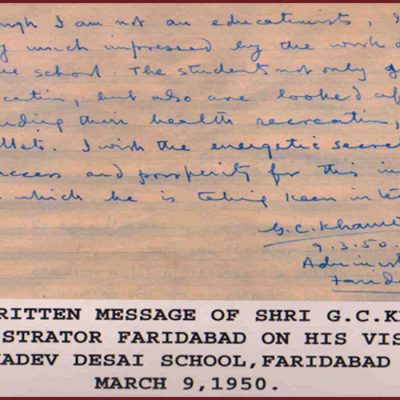 ugh I am not an educationists, I
y much impressed by the work d
ne school. The students not only g
cation, but also are looked af
nding their health recreation,
I wish the energetic secret
ccess and prosperity for this in
which he is taking keen inte
G.C. Khann
9.3.50.
Administ
Farida
RITTEN MESSAGE OF SHRI G.C.KH
STRATOR FARIDABAD ON HIS VIS
ADEV DESAI SCHOOL,FARIDABAD
MARCH 9,1950.